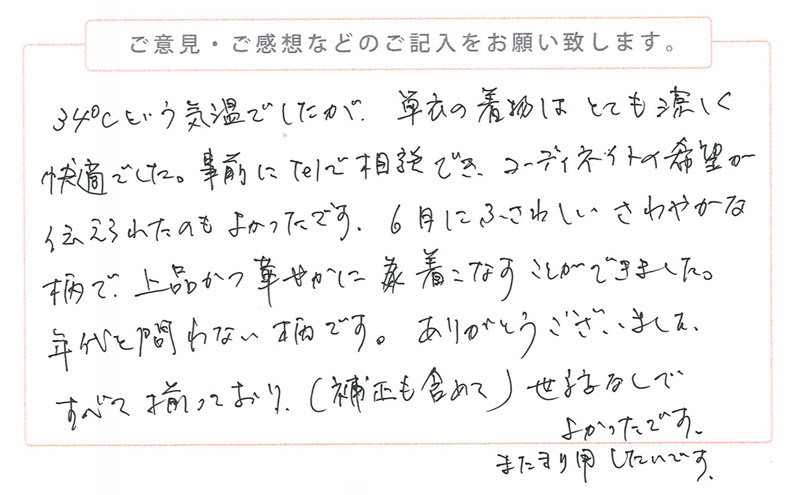 ご意見・ご感想などのご記入をお願い致します。
34℃という気温でしたが、単衣の着物はとても涼しく
快適でした。事前にTelで相談でき、コーディネイトの希望が
伝えられたのもよかったです。6月にふさわしいさわやかな
柄で、上品かつ華やかに着こなすことができました。
年代を問わない柄です。ありがとうございました。
すべて揃っており、(補正も含めて)世話なしで
よかったです。
また利用したいです。